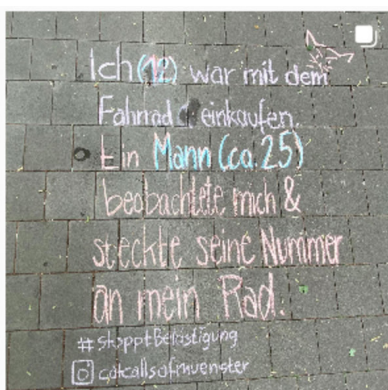 Ich (12) war mit dem
Fahrrad einkaufen.
Ein Mann (ca. 25)
beobachtete mich &
steckte seine Nummer
an mein Rad.
#stopptBelästigung
catcallsofmuenster